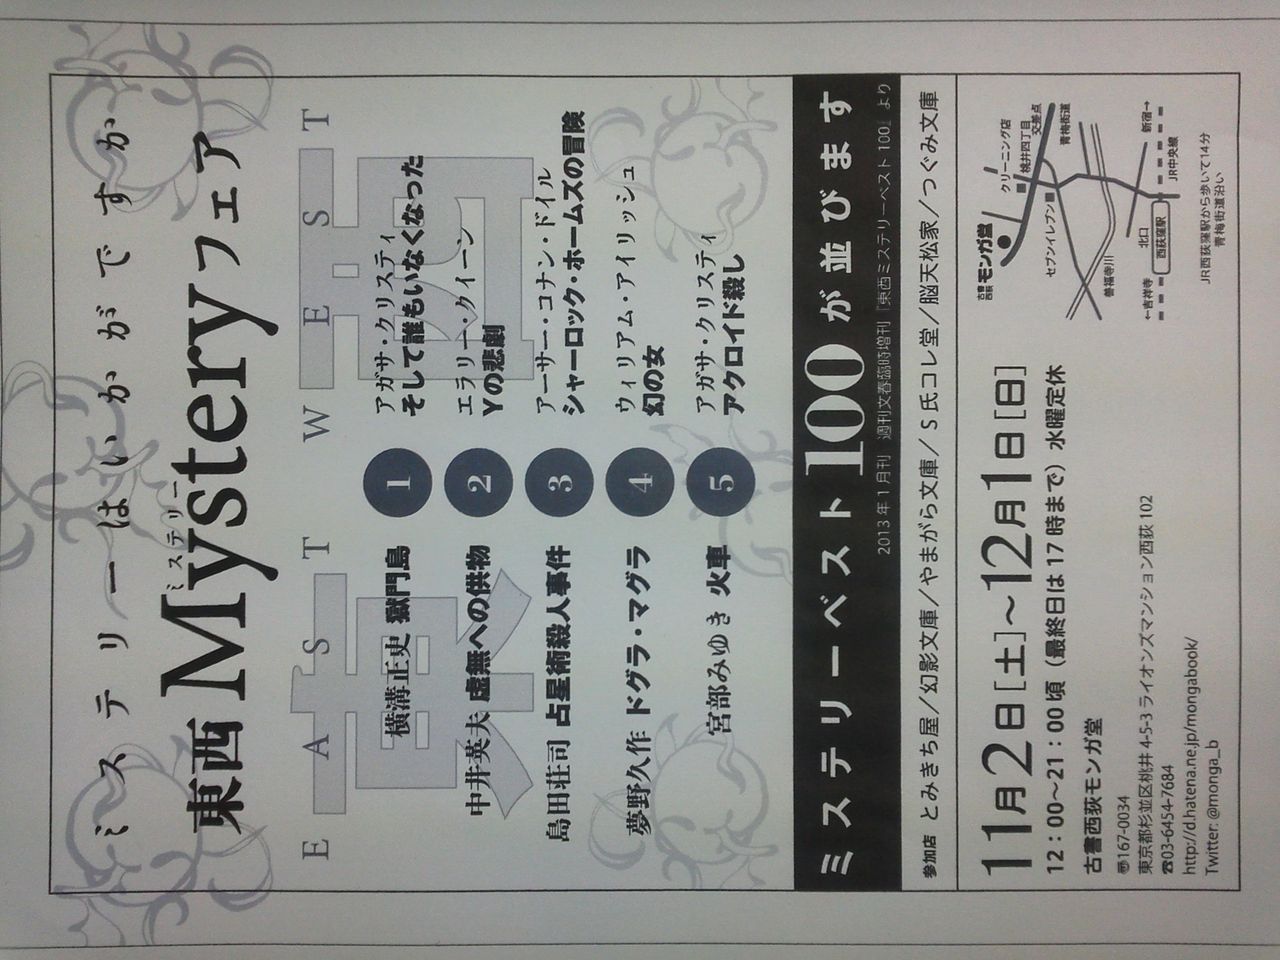 ミステリーはいかがですか
東西Mysteryフェア
ミステリー
EAST
東
WEST
西
横溝正史 獄門島
1
アガサ・クリスティ
そして誰もいなくなった
中井英夫 虚無への供物
2
エラリー・クイーン
Yの悲劇
島田荘司 占星術殺人事件
3
アーサー・コナン・ドイル
シャーロック・ホームズの冒険
夢野久作 ドグラ・マグラ
4
ウィリアム・アイリッシュ
幻の女
宮部みゆき 火車
5
アガサ・クリスティ
アクロイド殺し
ミステリーベスト100が並びます
2013年1月刊 週刊文春臨時増刊「東西ミステリーベスト100」より
参加店 とみきち屋/幻影文庫/やまがら文庫/S氏コレ堂/脳天松家/つぐみ文庫
11月2日[土]~12月1日[日]
12:00~21:00頃(最終日は17時まで)水曜定休
古書西荻モンガ堂
〠167-0034
東京都杉並区桃井4-5-3ライオンズマンション西荻102
☎03-6454-7684
http://d.hatena.ne.jp/mongabook/
Twitter: @monga_b
古書西荻モンガ堂
クリーニング店
桃井四丁目交差点
青梅街道
セブンイレブン
善福寺川
北口
←吉祥寺
西荻窪駅
新宿→
JR中央線
JR西荻窪駅から歩いて14分
青梅街道沿い